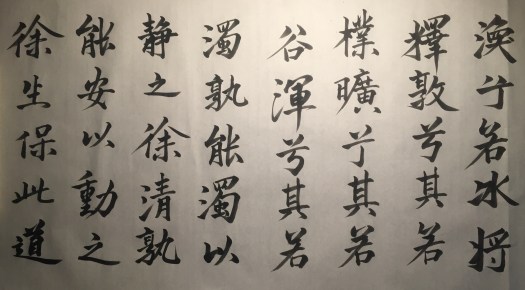 渙兮若冰將
釋敦兮其若
樸曠兮其若
谷渾兮其若
濁孰能濁以
静之徐清孰
能安以動之
徐生保此道